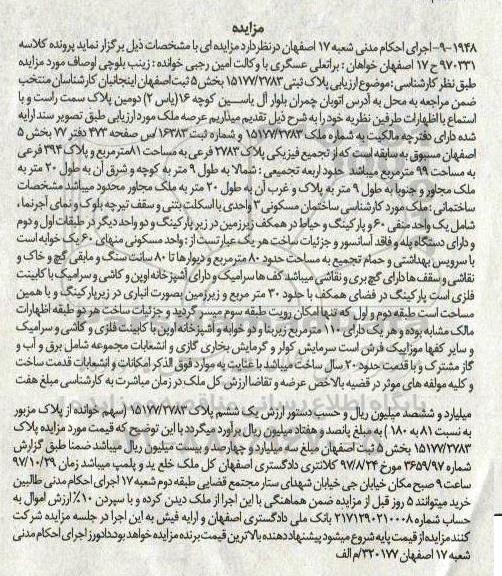 مزایده
۹-۱۹۴۸- اجرای احکام مدنی شعبه ۱۷ اصفهان در نظر دارد مزایده ای با مشخصات ذیل برگزار نماید پرونده کلاسه
۹۷۰۳۳۱ ح ۱۷ اصفهان خواهان : براتعلی عسگری با وکالت امین رجبی خوانده : زینب بلوچی اوصاف مورد مزایده
طبق نظر کارشناسی: موضوع ارزیابی پلاک ثبتی ۱۵۱۷۷/۲۷۸۳ بخش ۵ ثبت اصفهان اینجانبان کارشناسان منتخب
ضمن مراجعه به محل به آدرس اتوبان چمران بلوار آل یاسین کوچه ۱۶(یاس ۲) دومین پلاک سمت راست و با
استماع با اظهارات طرفین نظریه خود را به شرح ذیل تقدیم میداریم عرصه ملک مورد ارزیابی طبق تصویر سند ارایه
شده دارای دفترچه مالکیت به شماره ملک ۱۵۱۷۷/۲۷۸۳ و شماره ثبت ۱۶۳۸۳/س صفحه ۴۷۳ دفتر ۷۷ بخش ۵
اصفهان مسبوق به سابقه است که از تجمیع فیزیکی پلاک ۲۷۸۳ فرعی به مساحت ۸۱ مترمربع و پلاک ۳۹۴ فرعی
به مساحت ۹۹ مترمربع میباشد حدود اربعه تجمیعی : شمالا به طول ۹ متر به کوچه و شرق آن به طول ۲۰ متر به
ملک مجاور و جنوبا به طول ۹ متر به پلاک و غرب آن به طول ۲۰ متر به ملک مجاور محدود میباشد مشخصات
ساختمانی : ملک مورد کارشناسی ساختمان مسکونی ۳ واحدی با اسکلت بتنی و سقف تیرچه بلوک و نمای آجرنما،
شامل یک واحد منفی ۶۰ و پارکینگ و حیاط در همکف زیرزمین در زیر پارکینگ و دو واحد دیگر در طبقات اول و دوم
و دارای دستگاه پله و فاقد آسانسور و جزئیات ساخت هر یک عبارتست از : واحد مسکونی منهای ۶۰ یک خوابه است
با سرویس بهداشتی و حمام تجمیع به مساحت حدود ۸۰ مترمربع و دیوارها تا ۸۰ سانت سنگ و مابقی گچ و خاک و
نقاشی و سقف ها دارای گچ بری و نقاشی میباشد کف ها سرامیک و دارای آشپزخانه اوپن و کاشی و سرامیک با کابینت
فلزی است پارکینگ در فضای همکف با حدود ۳۰ متر مربع و زیرزمین بصورت انباری در زیرپارکینگ و با همین
مساحت است طبقه دوم و اول که تنها امکان رویت طبقه سوم میسر گردید و جزئیات ساخت هر دو طبقه اظهارات
مالک مشابه بوده و هر یک دارای ۱۱۰ مترمربع زیربنا و دو خوابه و آشپزخانه اوپن با کابینت فلزی و کاشی و سرامیک
و سایر کفها موزاییک فرش است سرمایش کولر و گرمایش بخاری گازی و انشعابات مجموعه شامل برق و آب و
گاز مشترک و با قدمت حدود ۲۰ سال ساخت میباشد با عنایت به موارد فوق الذکر امکانات و انشعابات قدمت ساخت
و کلیه مولفه های موثر در قضیه بالاخص عرضه و تقاضا ارزش کل ملک در زمان مباشرت به کارشناسی مبلغ هفت
میلیارد و ششصد میلیون ریال و حسب دستور ارزش یک ششم پلاک ۱۵۱۷۷/۲۷۸۳ (سهم خوانده از پلاک مزبور
به نسبت ۸۱ به ۱۸۰ ) به مبلغ پانصد و هفتاد میلیون ریال برآورد میگردد با این توضیح که قیمت مورد مزایده پلاک
۱۵۱۷۷/۲۷۸۳ بخش ۵ ثبت اصفهان مبلغ سه میلیارد و چهارصد و بیست میلیون ریال میباشد ضمنا طبق گزارش
شماره ۳۶۵۹/۹۷ مورخ ۹۷/۸/۲۴ کلانتری دادگستری اصفهان کل ملک خلع ید و پلمپ میباشد زمان ۹۷/۱۰/۲۹
ساعت ۹ صبح مکان خیابان جی خیابان شهدای ستار مجتمع قضایی طبقه دوم شعبه ۱۷ اجرای احکام مدنی طالبین
خرید میتوانند ۵ روز قبل از مزایده ضمن هماهنگی با این اجرا از ملک دیدن کرده و با سپردن ۱۰٪ ارزش اموال به
حساب شماره ۲۱۷۱۲۹۰۲۱۰۰۰۸ بانک ملی دادگستری اصفهان و ارایه فیش به این اجرا در جلسه مزایده شرکت
کنند مزایده از قیمت پایه شروع میشود پیشنهاد دهنده بالاترین قیمت برنده مزایده خواهد بود دادورز اجرای احکام مدنی
شعبه ۱۷ اصفهان ۳۲۰۱۷۷/م الف